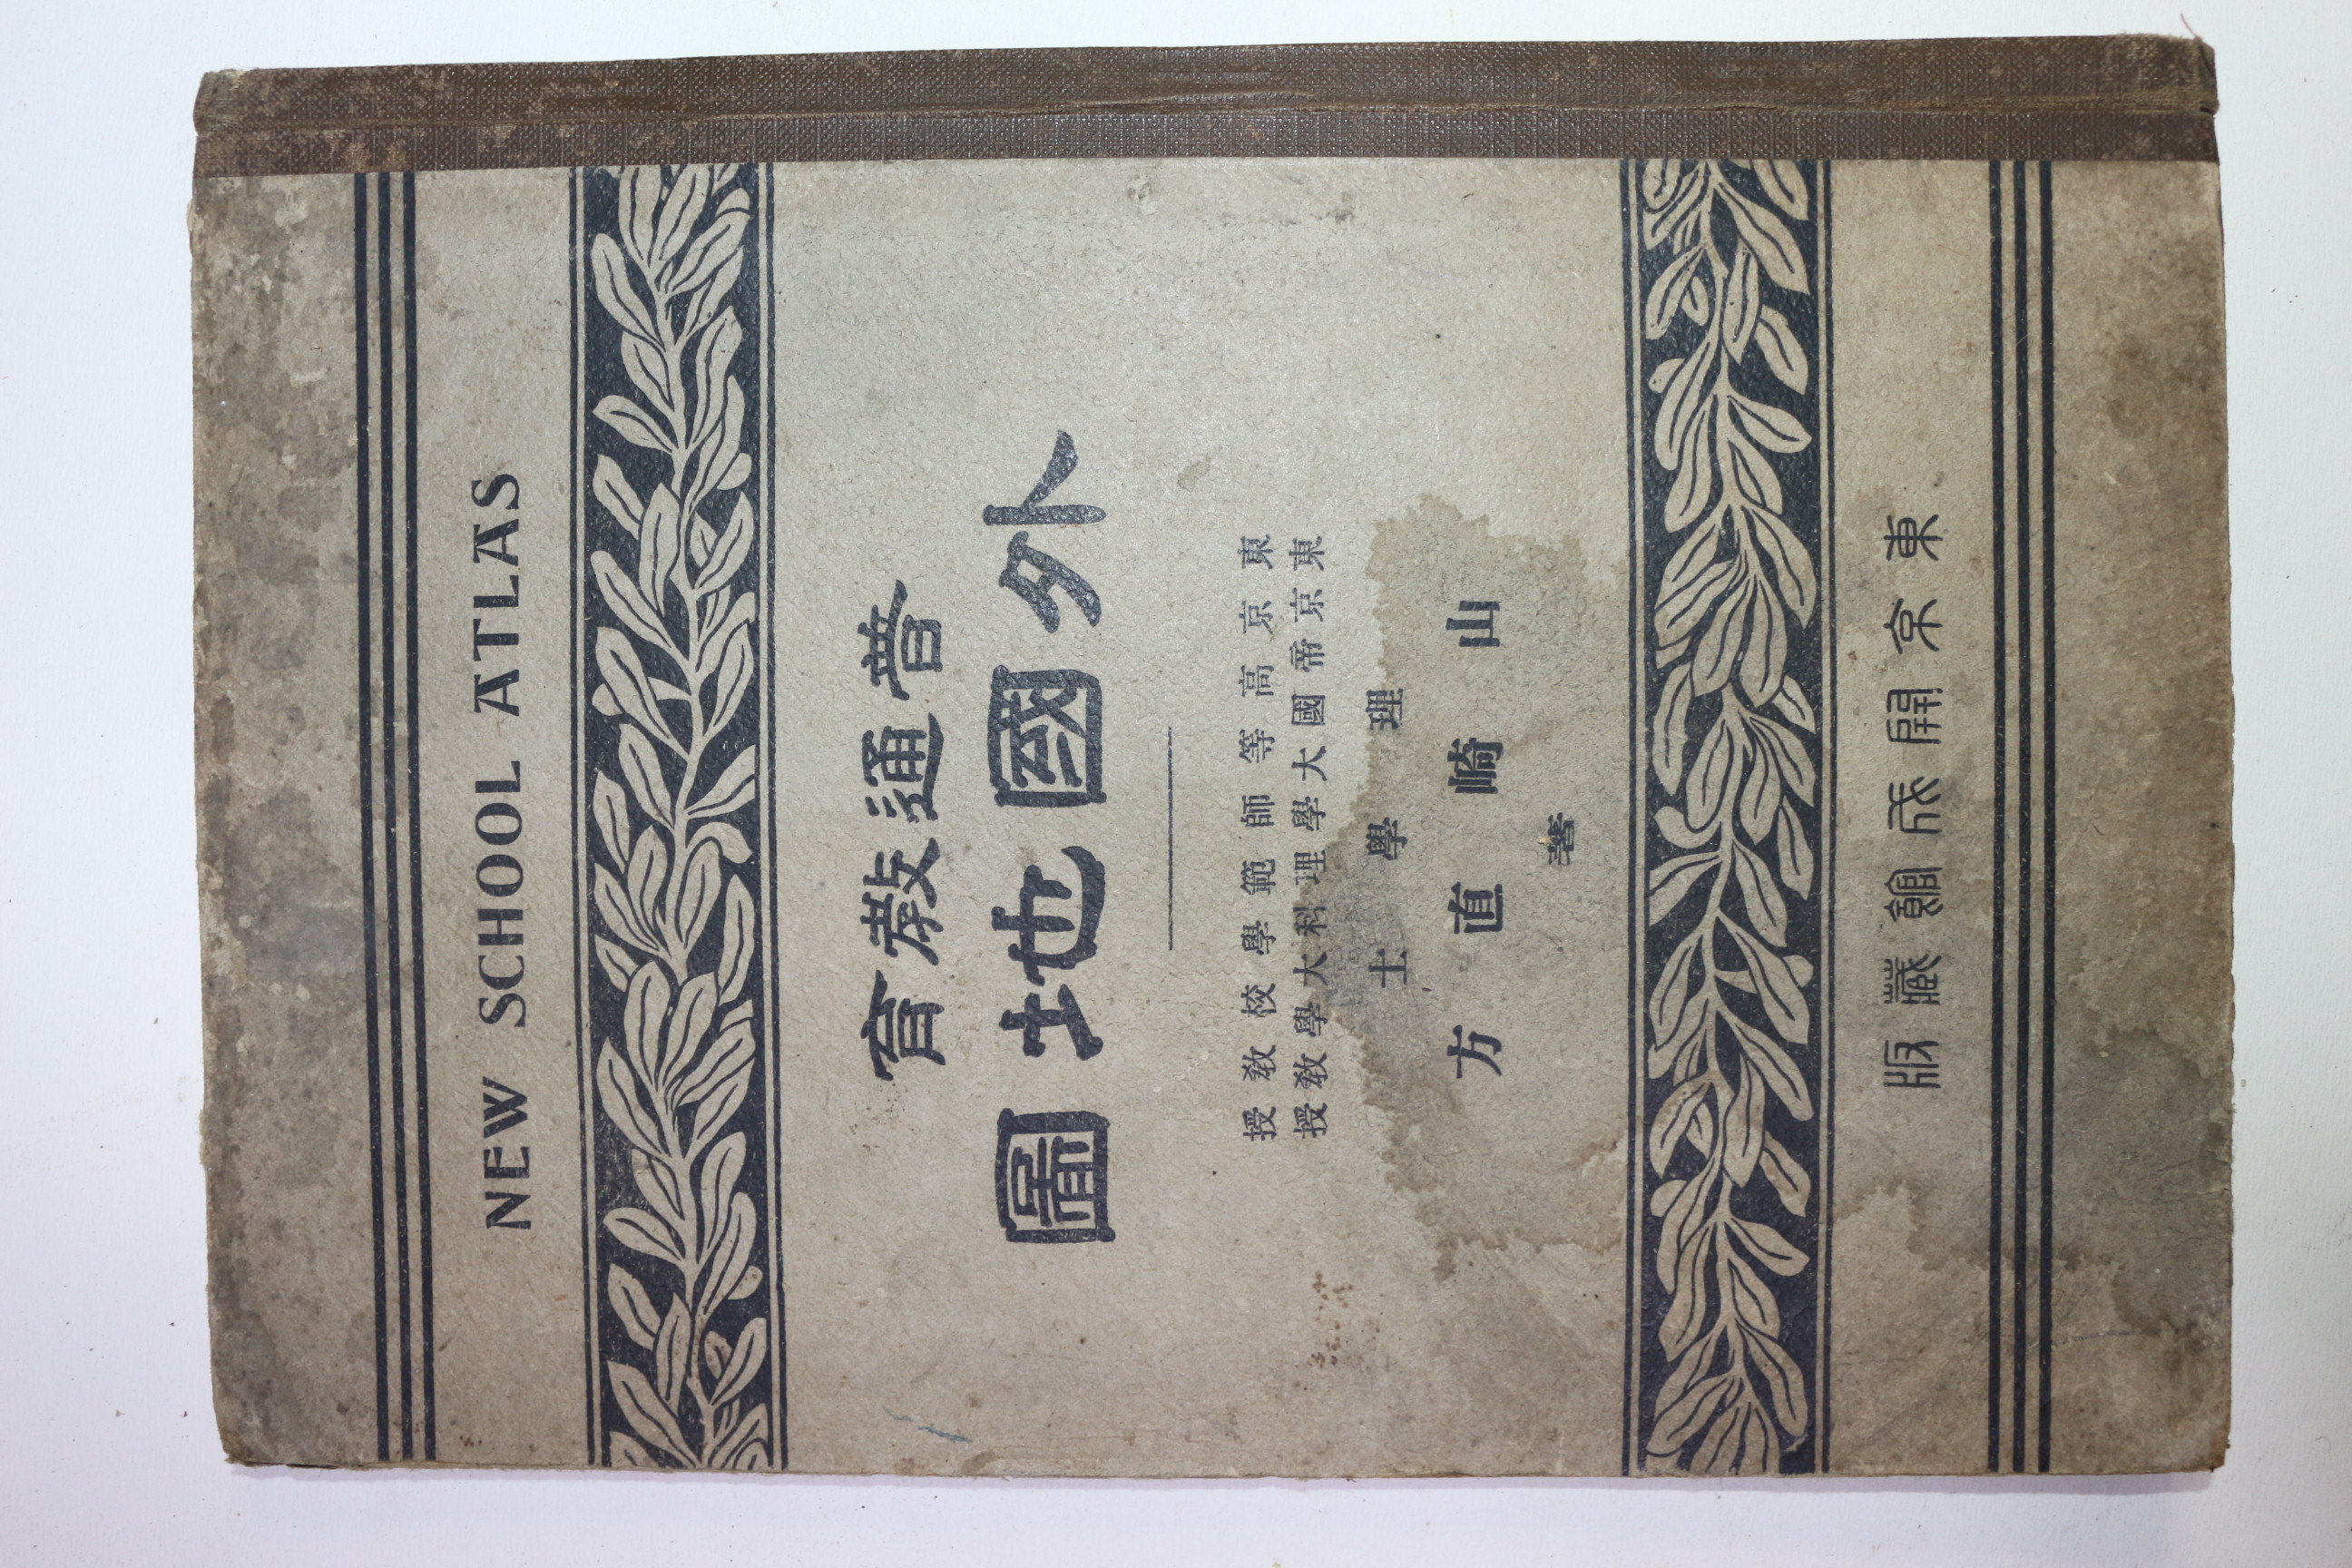 NEW SCHOOL ATLAS
普通教育
外國地圖
東京高等師範學校敎授
東京帝國大學理科大學敎授
理學士
山崎直方
著
東京開成館藏版